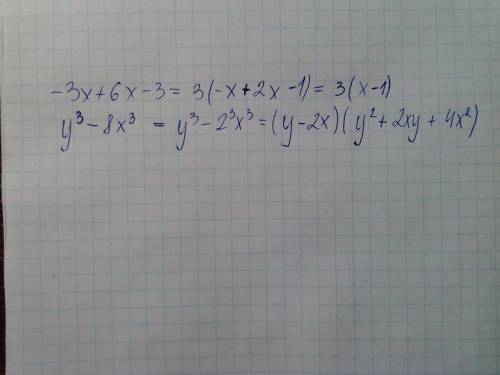 -3x+6x-3 = 3(-x+2x-1) = 3(x-1)
y³-8x³ = y³-2³x³ = (y-2x)(y²+2xy+4x²)